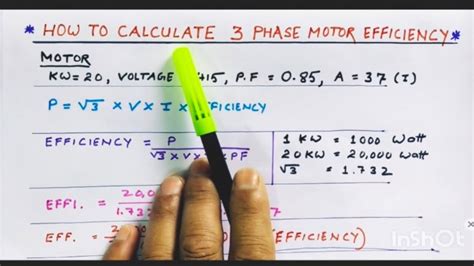 * HOW TO CALCULATE 3 PHASE MOTOR EFFICIENCY *
MOTOR
KW=20, VOLTAGE 415, P.F = 0.85, A = 37 (I)
P = √3 x V x I x EFFICIENCY
EFFICIENCY = P
√3 x V x PF
1 KW = 1000 Watt
20 KW = 20,000 Watt
√3 = 1.732
EFFI. = 20,
1.732
EFF. = (EFFICIENCY)
InShOt